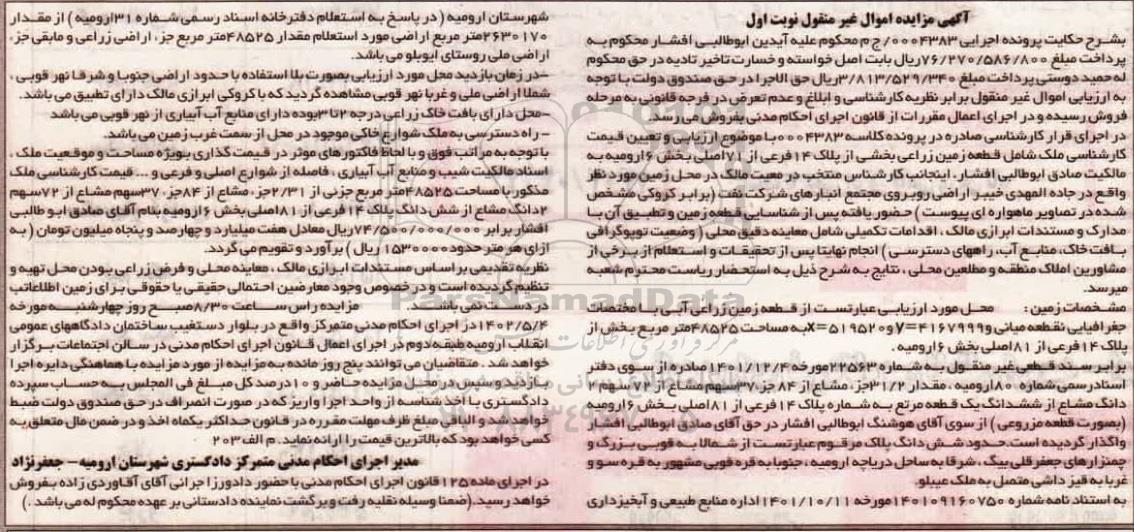 آگهی مزایده اموال غیر منقول نوبت اول
بشرح حکایت پرونده اجرایی ۰۰۰۴۳۸۳/ج م محکوم علیه آیدین ابوطالبی افشار محکوم به
پرداخت مبلغ ۷۶/۲۷۰/۵۸۶/۸۰۰ریال بابت اصل خواسته و خسارت تاخیر تادیه در حق محکوم
له حمید دوستی پرداخت مبلغ ۳/۸۱۳/۵۲۹/۳۴۰ریال حق الاجرا در حق صندوق دولت با توجه
به ارزیابی اموال غیر منقول برابر نظریه کارشناسی و ابلاغ و عدم تعرض در فرجه قانونی به مرحله
فروش رسیده و در اجرای اعمال مقررات از قانون اجرای احکام مدنی بفروش می رسد.
در اجرای قرار کارشناسی صادره در پرونده کلاسه ۰۰۰۴۳۸۳با موضوع ارزیابی و تعیین قیمت
کارشناسی ملک شامل قطعه زمین زراعی بخشی از پلاک ۱۴فرعی از ۷۱اصلی بخش ۶ارومیه به
مالکیت صادق ابوطالبی افشار، اینجانب کارشناس منتخب در معیت مالک در محل زمین مورد نظر
واقع در جاده المهدی خیبر اراضی روبروی مجتمع انبارهای شرکت نفت (برابر کروکی مشخص
شده در تصاویر ماهواره ای پیوست) حضور یافته پس از شناسایی قطعه زمین و تطبیق آن با
مدارک و مستندات ابرازی مالک، اقدامات تکمیلی شامل معاینه دقیق محلی (وضعیت توپوگرافی
بافت خاک، منابع آب، راههای دسترسی) انجام نهایتا پس از تحقیقات و استعلام از برخی از
مشاورین املاک منطقه و مطلعین محلی، نتایج به شرح ذیل به استحضار ریاست محترم شعبه
میرسد.
مشخصات زمین: محل مورد ارزیابی عبارتست از قطعه زمین زراعی آبی با مختصات
جغرافیایی نقطعه میانی و ۴۱۶۷۹۹۹=y و ۵۱۹۵۲۰=x به مساحت ۴۸۵۲۵متر مربع بخش از
پلاک ۱۴فرعی از ۸۱اصلی بخش ۶ارومیه.
برابر سند قطعی غیر منقول به شماره ۲۲۵۶۳مورخه ۱۴۰۱/۱۲/۴صادره از سوی دفتر
اسنادرسمی شماره ۸۰ارومیه، مقدار ۳۱/۲جز، مشاع از ۸۴جز، ۳۷سهم مشاع از ۷۲ سهم ۲
دانگ مشاع از ششدانگ یک قطعه مرتع به شماره پلاک ۱۴فرعی از ۸۱اصلی بخش ۶ارومیه
(بصورت قطعه مزروعی) از سوی آقای هوشنگ ابوطالبی افشار در حق آقای صادق ابوطالبی افشار
واگذار گردیده است.حدود شش دانگ پلاک مرقوم عبارتست از شمالا به قوبی بزرگ و
چمنزارهای جعفر قلی بیگ، شرقا به ساحل دریاچه ارومیه، جنوبا به قره قوبی مشهور به قره سو و
غربا به قیز داشی متصل به ملک عیبلو.
به استناد نامه شماره ۱۴۰۱۰۹۱۶۰۷۵۰مورخه ۱۴۰۱/۱۰/۱۱اداره منابع طبیعی و آبخیزداری
شهرستان ارومیه (در پاسخ به استعلام دفترخانه اسناد رسمی شماره ۳۱ارومیه) از مقدار
۲۶۳۰۱۷۰متر مربع اراضی مورد استعلام مقدار ۴۸۵۲۵متر مربع جز، اراضی زراعی و مابقی جز،
اراضی ملی روستای ایوبلو می باشد.
-در زمان بازدید محل مورد ارزیابی بصورت بلا استفاده با حدود اراضی جنوبا و شرقا نهر قوبی،
شملا اراضی ملی و غربا نهر قوبی مشاهده گردید که با کروکی ابرازی مالک دارای تطبیق می باشد.
-محل دارای بافت خاک زراعی درجه ۲تا ۳بوده دارای منابع آب آبیاری از نهر قوبی می باشد
- راه دسترسی به ملک شوارع خاکی موجود در محل از سمت غرب زمین می باشد.
با توجه به مراتب فوق و با لحاظ فاکتورهای موثر در قیمت گذاری بویژه مساحت و موقعیت ملک،
اسناد مالکیت شیب و منابع آب آبیاری، فاصله از شوارع اصلی و فرعی و ... قیمت کارشناسی ملک
مذکور با مساحت ۴۸۵۲۵متر مربع جزئی از ۲/۳۱جز، مشاع از ۸۴جز، ۳۷سهم مشاع از ۷۲سهم
۲دانگ مشاع از شش دانگ پلاک ۱۴فرعی از ۸۱اصلی بخش ۶ارومیه بنام آقای صادق ابو طالبی
افشار برابر ۷۴/۵۰۰/۰۰۰/۰۰۰ریال معادل هفت میلیارد و چهارصد و پنجاه میلیون تومان (به
ازای هر متر حدود ۱۵۳۰۰۰۰ ریال) برآورد و تقویم می گردد.
نظریه تقدیمی بر اساس مستندات ابرازی مالک، معاینه محلی و فرض زراعی بودن محل تهیه و
تنظیم گردیده است و در خصوص وجود معارضین احتمالی حقیقی یا حقوقی برای زمین اطلاعاتب
در دست نمی باشد. مزایده راس ساعت ۸/۳۰صبح روز چهارشنبه مورخه
۱۴۰۲/۵/۴در اجرای احکام مدنی متمرکز واقع در بلوار دستغیب ساختمان دادگاههای عمومی
انقلاب ارومیه طبقه دوم در اجرای اعمال قانون اجرای احکام مدنی در سالن اجتماعات برگزار
خواهد شد. متقاضیان می توانند پنج روز مانده به مزایده از مورد مزایده با هماهنگی دایره اجرا
بازدید و سپس در محل مزایده حاضر و ۱۰درصد کل مبلغ فی المجلس به حساب سپرده
دادگستری با اخذ شناسه از واحد اجرا واریز که در صورت انصراف در حق صندوق دولت ضبط
خواهد شد و الباقی مبلغ ظرف مهلت مقرره در قانون حداکثر یکماه اخذ و در ضمن مال متعلق به
کسی خواهد بود که بالاترین قیمت را ارائه نماید. م الف ۲۰۳
مدیر اجرای احکام مدنی متمرکز دادگستری شهرستان ارومیه – جعفرنژاد
در اجرای ماده ۱۲۵قانون اجرای احکام مدنی با حضور دادورز اجرائی آقای آقاوردی زاده بفروش
خواهد رسید. (ضمنا وسیله نقلیه رفت و برگشت نماینده دادستانی بر عهده محکوم له می باشد.)
ParsNamadData